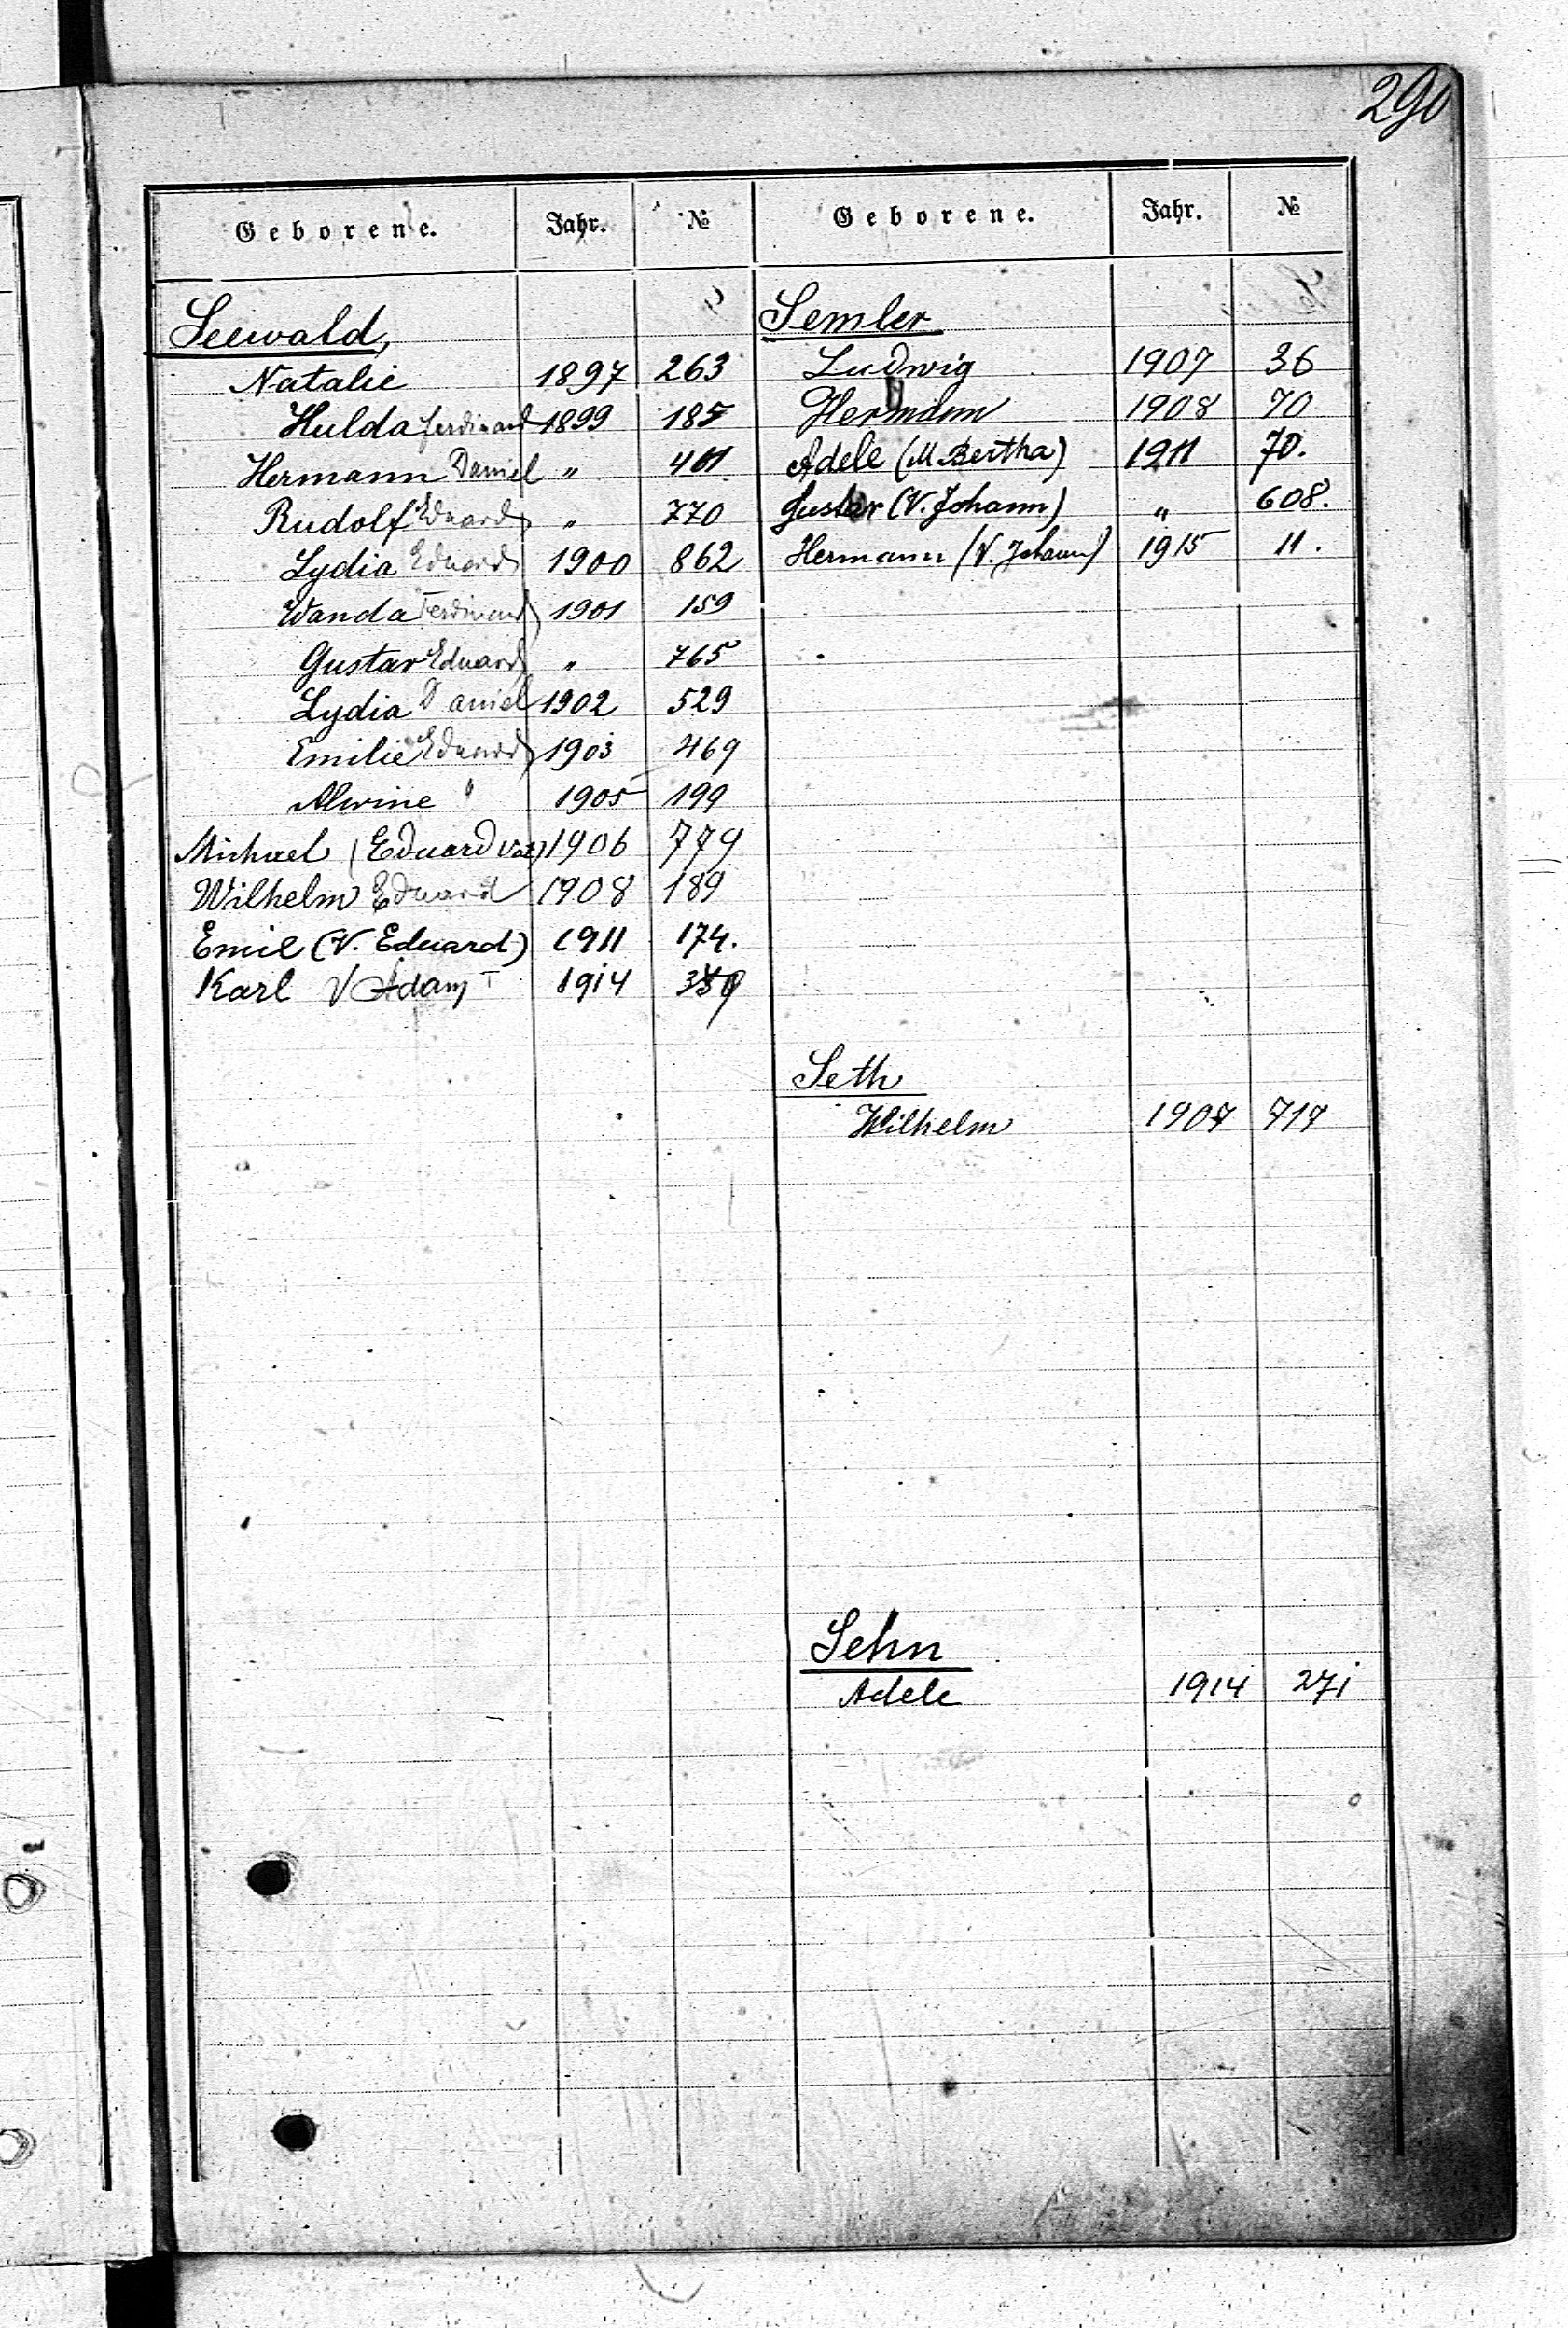 290
Geborene. Jahr. № Geborene. Jahr. №
Seewald,
Natalie 1897 263
Hulda Ferdinand 1899 185
Hermann Daniel " 401
Rudolf Eduard " 770
Lydia Eduard 1900 862
Wanda Ferdinand 1901 159
Gustav Eduard " 765
Lydia Daniel 1902 529
Emilie Eduard 1903 469
Alwine " 1905 199
Michael (Eduard Vat) 1906 779
Wilhelm Eduard 1908 189
Emil (V. Eduard) 1911 174.
Karl V Adam 1914
Semler
Ludwig 1907 36
Hermann 1908 70
Adele (M. Bertha) 1911 70.
Gustav (V. Johann) " 608.
Hermann (V. Johann) 1915 11.
Seth
Wilhelm 1907 717
Sehn
Adele 1914 271